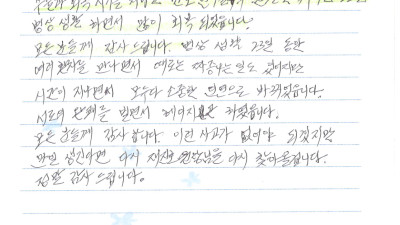 병상 생활 하면서 많이 회복 되었습니다.
모든 분들께 감사 드립니다. 병상 생활 23일 동안
여러 환자를 만나면서 때로는 짜증나는 일도 있었지만
시간이 지나면서 모두다 소중한 인연으로 바뀌었습니다.
서로의 완쾌를 빌면서 헤어지곤 하였습니다.
모든 분들께 감사 합니다. 이런 사고가 없어야 되겠지만
만일 생긴다면 다시 원장님을 다시 찾아 올겁니다.
정말 감사 드립니다.